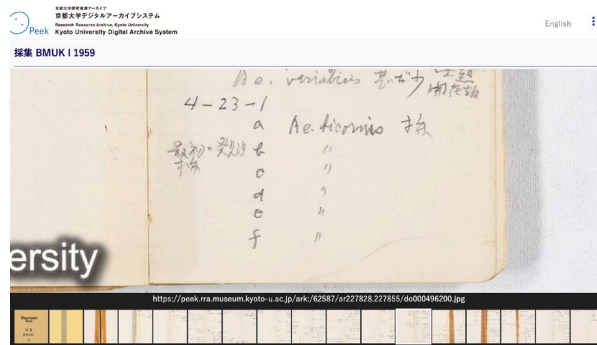 京都大学研究資源アーカイブ
京都大学デジタルアーカイブシステム
Research Resource Archive, Kyoto University
Peek Kyoto University Digital Archive System
English
採集 BMUK I 1959
Ae. variabilis
4-23-1
a Ae.
b 〃
c 〃
d 〃
e 〃
f 〃
ersity
https://peek.rra.museum.kyoto-u.ac.jp/ark:/62587/ar227828.227855/do000496200.jpg